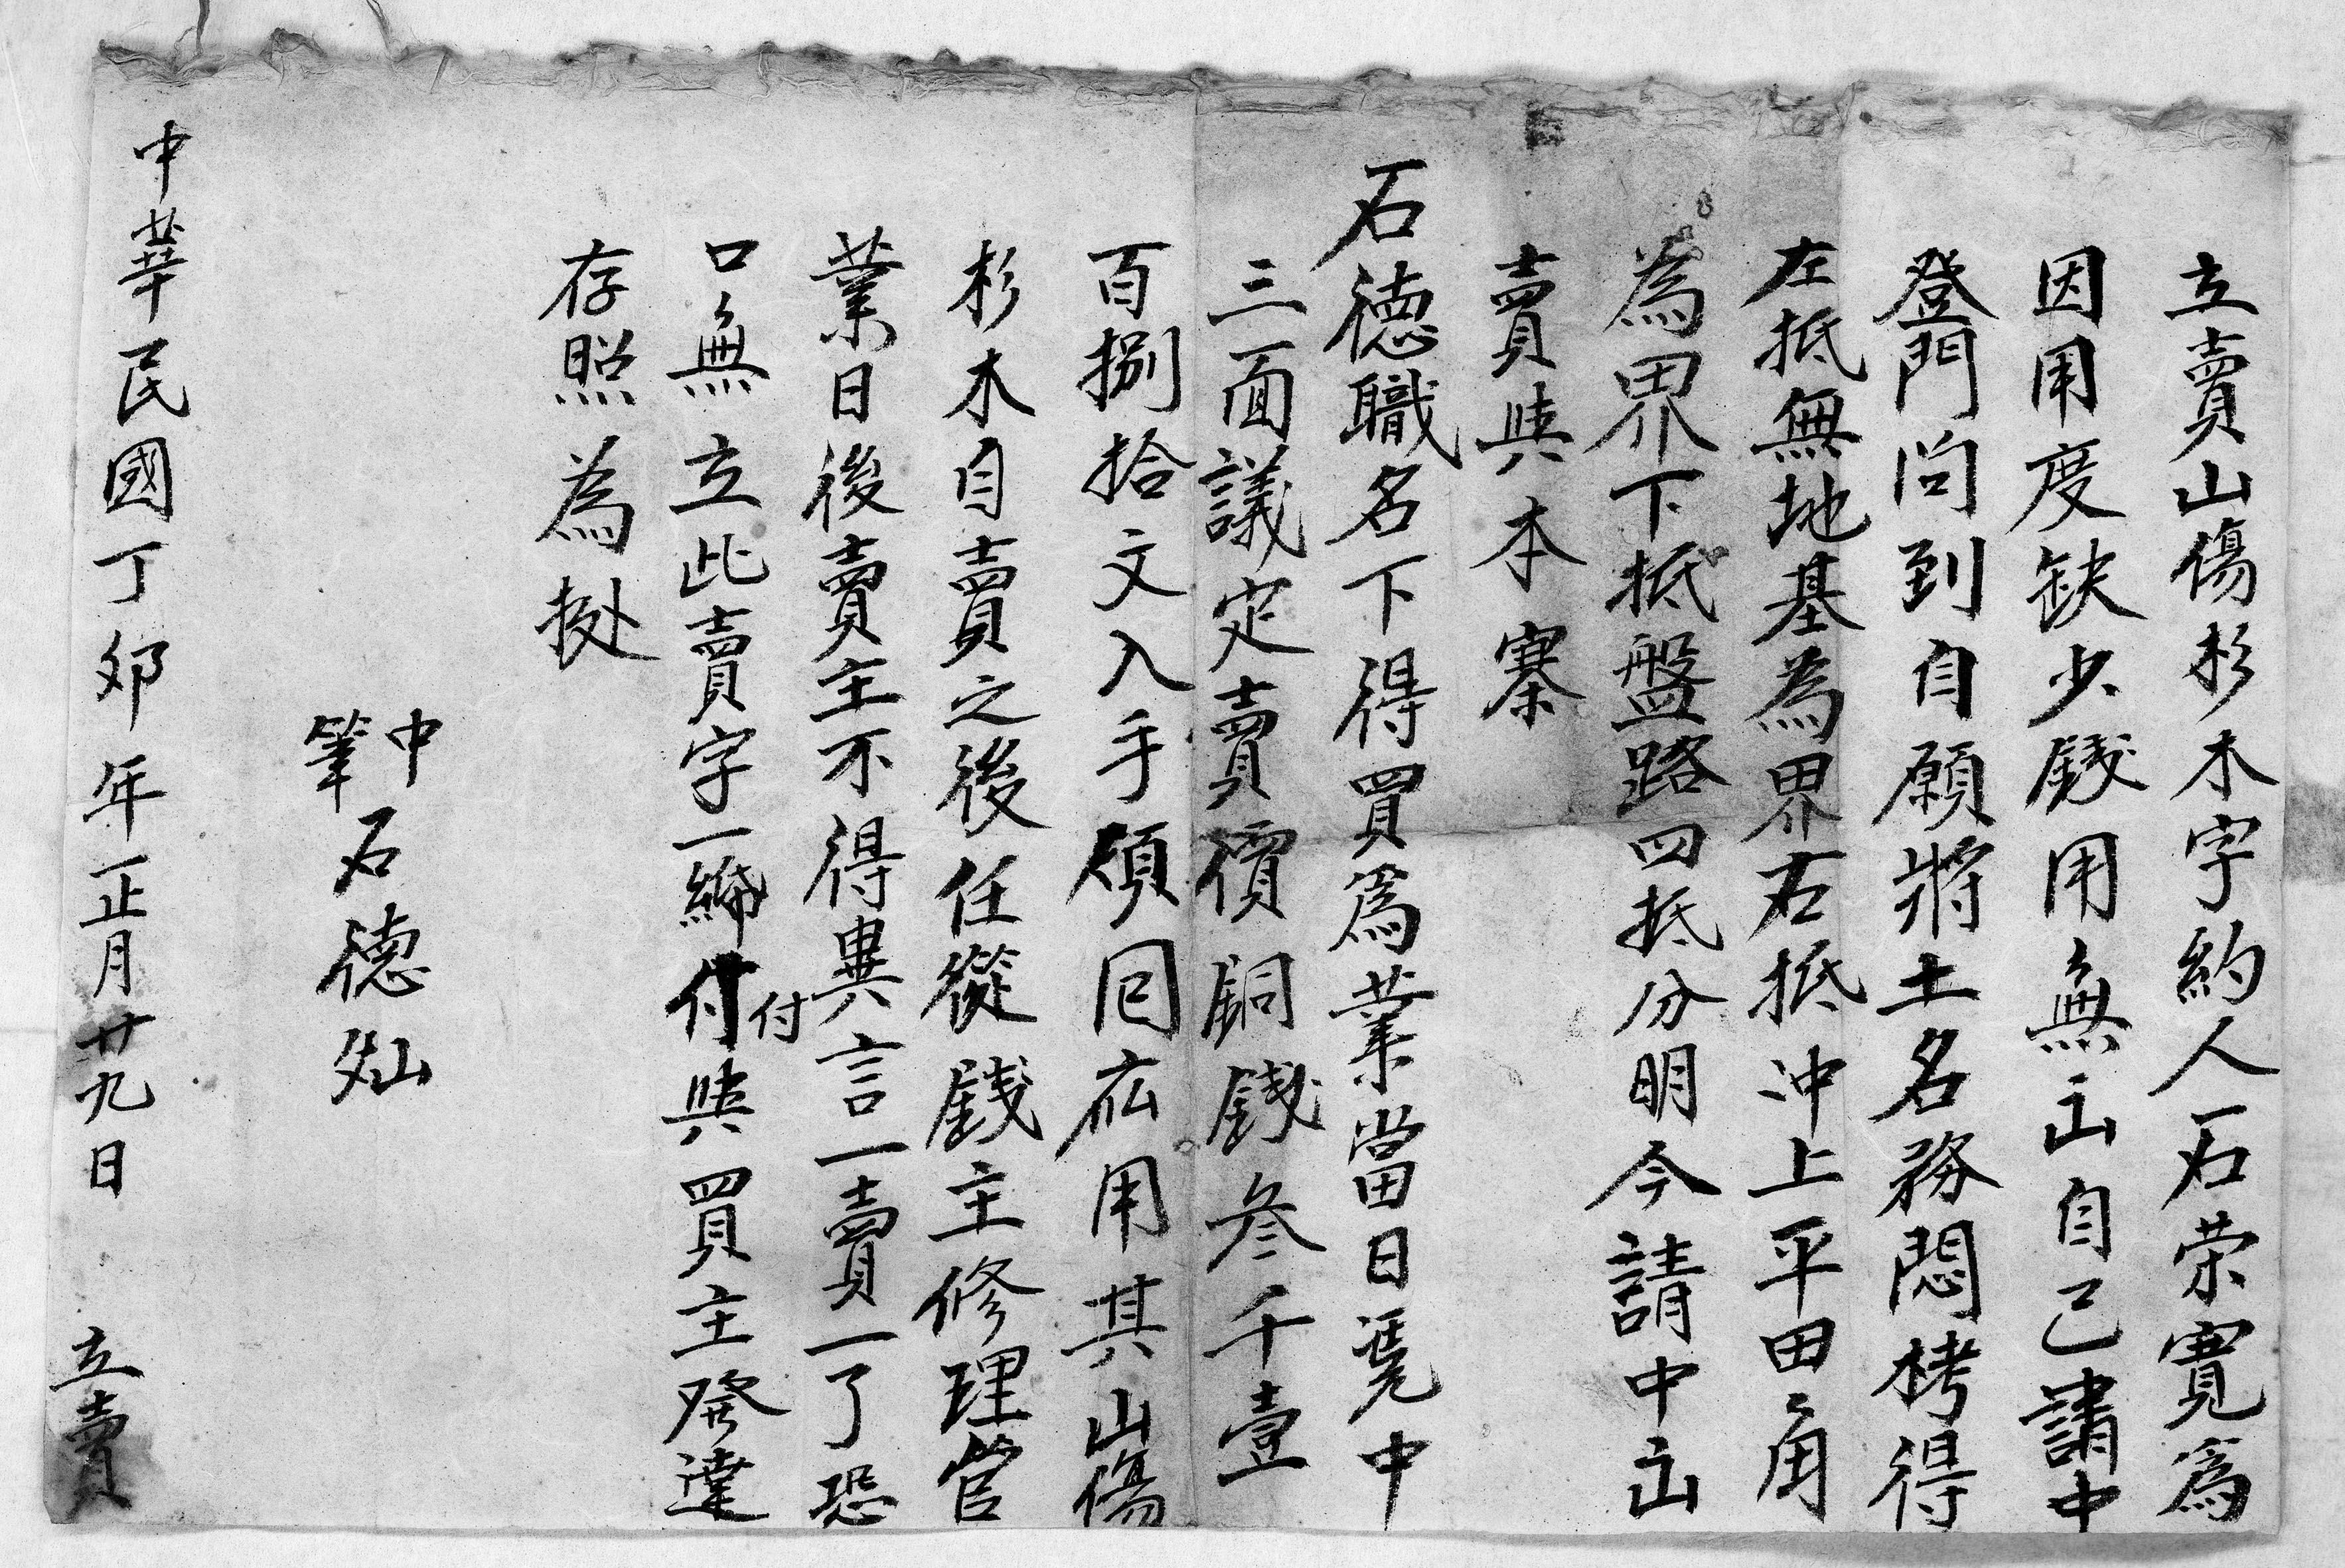 立賣山傷杉木字約人石荣寬為
因用度缺少錢用無山自己請中
登門问到自願將土名務悶栲得
左抵無地基為界右抵冲上平田角
為界下抵盤路四抵分明今請中山
賣與本寨
石德職名下得買為業當日凴中
三面議定賣價銅錢叁千壹
百捌拾文入手領回应用其山傷
杉木自賣之後任從錢主修理管
業日後賣主不得異言一賣一了恐
口無立此賣字一紙付付與買主發達
存照為挀
中
筆石德灿
中華民國丁卯年正月廿九日 立賣